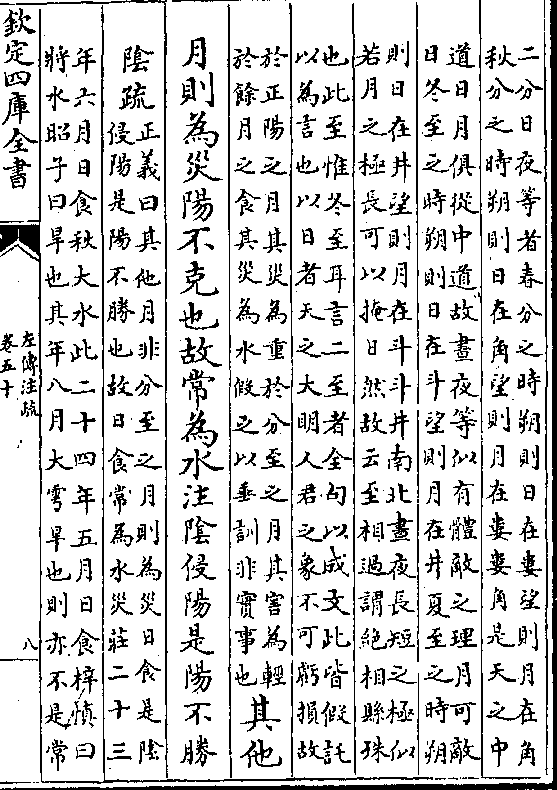 二分日夜等者春分之時朔則日在婁望則月在角
秋分之時朔則日在角望則月在婁婁角是天之中
道日月俱從中道故晝夜等似有體敵之理月可敵
日冬至之時朔則日在斗望則月在井夏至之時朔
則日在井望則月在斗斗井南北晝夜長短之極似
若月之極長可以掩日然故云至相過謂絶相縣殊
也此至惟冬至耳言二至者全句以成文此皆假託
以為言也以日者天之大明人君之象不可虧損故
於正陽之月其災為重於分至之月其害為輕
於餘月之食其災為水假之以垂訓非實事也
其他
月則為災陽不克也故常為水注陰侵陽是陽不勝
陰疏
正義曰其他月非分至之月則為災日食是陰
侵陽是陽不勝也故日食常為水災莊二十三
年六月日食秋大水此二十四年五月日食梓慎曰
將水昭子曰旱也其年八月大雩旱也則亦不是常
欽定四庫全書
左傳注疏
卷五十
八